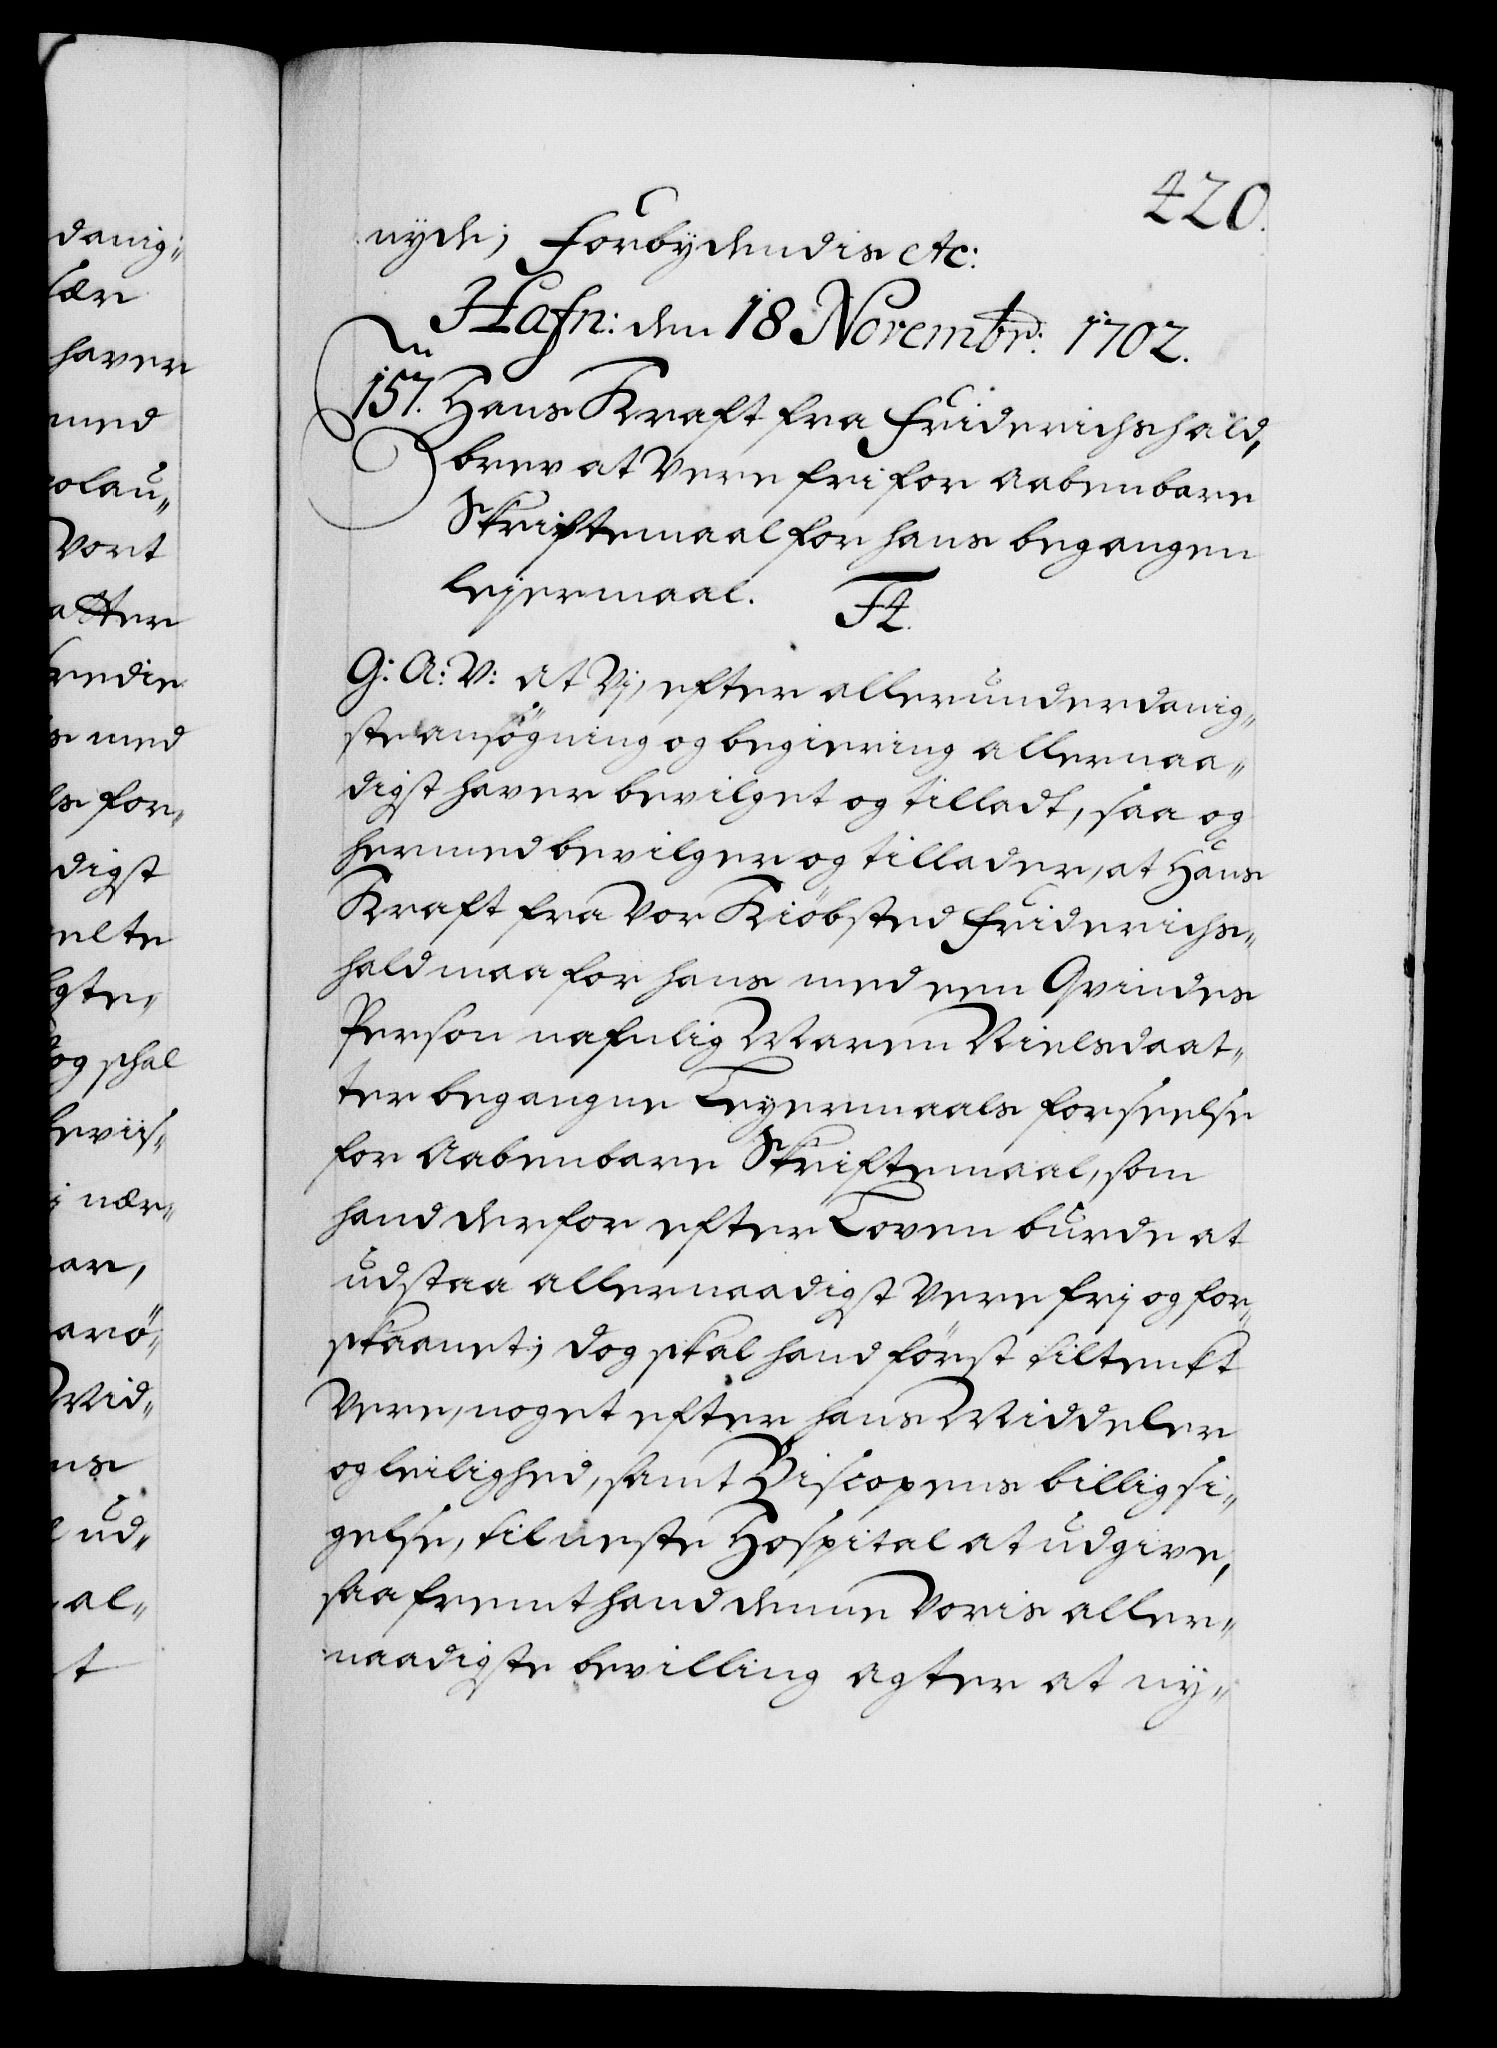 420.
nyde; Forbydendis etc:
Hafn: den 18 Novembr: 1702.
157. Hans Kraft fra Friderichshald,
brev at Vere fri for Aabenbare
Skriftemaal for hans begangen
lejermaal. F4.
G: A: V: at Vj, efter allerunderdanig„
ste ansögning og begiering allernaa„
digst haver bevilget og tilladt, saa og
hermed bevilger og tillader, at Hans
Kraft fra Vor Kiöbsted Friderichs„
hald maa for hans med een Qvindes
Person nafnlig Maren Nielsdaat„
ter begangne Leyermaals forseelse
for Aabenbare Skriftemaal, som
hand derfor efter Loven burde at
udstaa allernaadigst Vere frj og for„
skaanet; dog skal hand först tiltenkt
Vere, noget efter hans Middeler
og leilighed, samt Biscopens billig si„
gelse, til neste Hospital at udgive,
saafremt hand denne Voris aller„
naadigste bevilling agter at ny„
danig„
haver
med
Vort
med
for„
digst
og schal
beviis„
i nær„
Mid„
ud„
al„